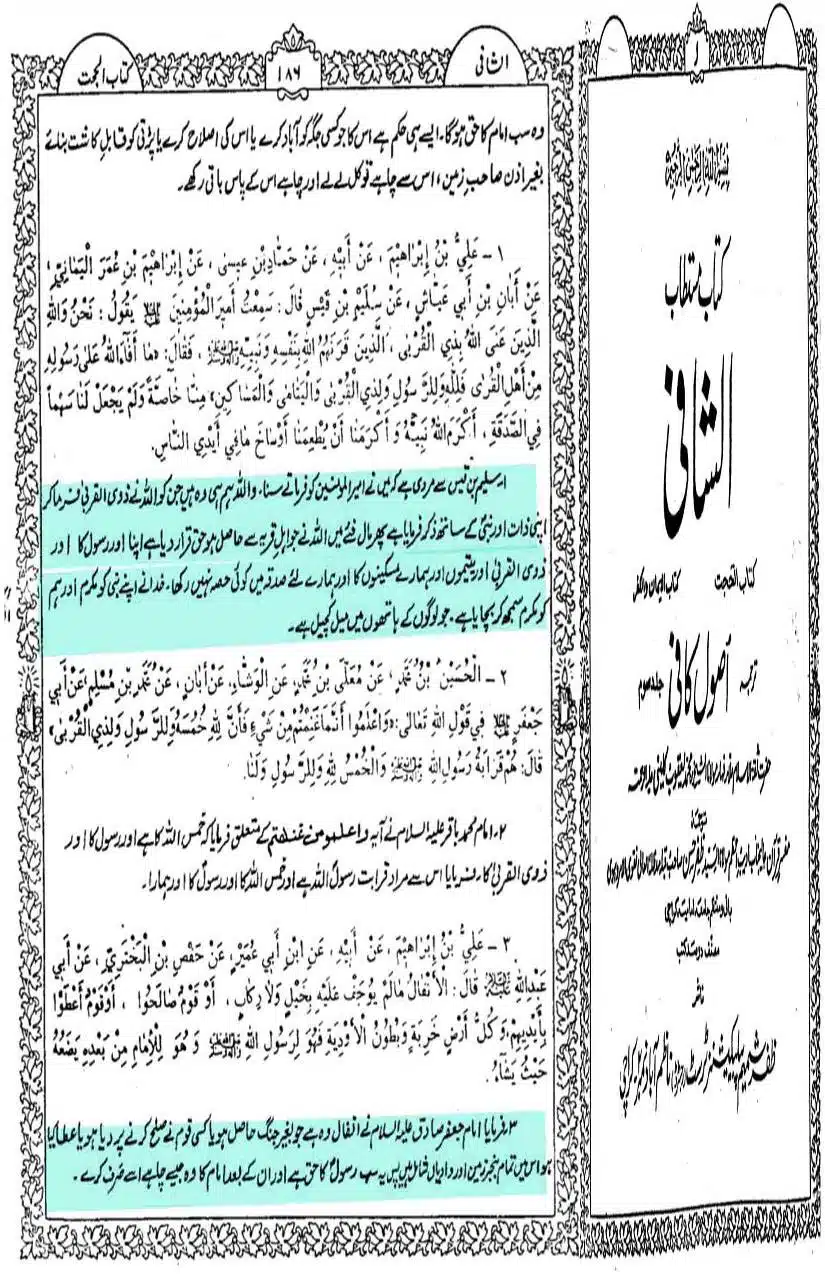 الثانی
۱۸۶
کتاب الحجت
وہ سب امام کا حق ہوگا۔ ایسے ہی حکم ہے اس کا جو کسی جگہ کو آباد کرے یا اس کی اصلاح کرے یا پڑتی کو قابل کاشت بنائے
بغیر اذن صاحب زمین، اس سے چاہے تو کل لے لے اور چاہے اس کے پاس باقی رکھے۔
۱ - عَلِيُّ بْنُ إِبْرَاهِيمَ، عَنْ أَبِيهِ، عَنْ حَمَّادِ بْنِ عِيسَى، عَنْ إِبْرَاهِيمَ بْنِ عُمَرَ الْيَمَانِيِّ،
عَنْ أَبَانِ بْنِ أَبِي عَيَّاشٍ، عَنْ سُلَيْمِ بْنِ قَيْسٍ قَالَ: سَمِعْتُ أَمِيرَ الْمُؤْمِنِينَ يَقُولُ: نَحْنُ وَاللهِ
الَّذِينَ عَنَى اللهُ بِذِي الْقُرْبَى، الَّذِينَ قَرَنَهُمُ اللهُ بِنَفْسِهِ وَنَبِيِّهِ، فَقَالَ: «مَا أَفَاءَ اللهُ عَلَى رَسُولِهِ
مِنْ أَهْلِ الْقُرَى فَلِلَّهِ وَلِلرَّسُولِ وَلِذِي الْقُرْبَى وَالْيَتَامَى وَالْمَسَاكِينِ» مِنَّا خَاصَّةً وَلَمْ يَجْعَلْ لَنَا سَهْمًا
فِي الصَّدَقَةِ، أَكْرَمَ اللهُ نَبِيَّهُ وَ أَكْرَمَنَا أَنْ يُطْعِمَنَا أَوْسَاخَ مَا فِي أَيْدِي النَّاسِ.
۱۔ سلیم بن قیس سے مروی ہے کہ میں نے امیر المومنین کو فرماتے سنا۔ واللہ ہم ہی وہ ہیں جن کو اللہ نے ذوی القربیٰ فرما کر
اپنی ذات اور نبیؐ کے ساتھ ذکر فرمایا ہے پھر مال فئے میں اللہ نے جو اہل قریہ سے حاصل ہو حق قرار دیا ہے اپنا اور رسول کا اور
ذوی القربیٰ اور یتیموں اور ہمارے مسکینوں کا اور ہمارے لئے صدقہ میں کوئی حصہ نہیں رکھا۔ خدا نے اپنے نبی کو مکرم اور ہم
کو مکرم سمجھ کر بچایا ہے۔ جو لوگوں کے ہاتھوں میں میل کچیل ہے۔
۲ - الْحُسَيْنُ بْنُ مُحَمَّدٍ، عَنْ مُعَلَّى بْنِ مُحَمَّدٍ، عَنِ الْوَشَّاءِ، عَنْ أَبَانٍ، عَنْ مُحَمَّدِ بْنِ مُسْلِمٍ، عَنْ أَبِي
جَعْفَرٍ فِي قَوْلِ اللهِ تَعَالَى: «وَاعْلَمُوا أَنَّمَا غَنِمْتُمْ مِنْ شَيْءٍ فَأَنَّ لِلَّهِ خُمُسَهُ وَلِلرَّسُولِ وَلِذِي الْقُرْبَى»
قَالَ: هُمْ قَرَابَةُ رَسُولِ اللهِ وَالْخُمُسُ لِلَّهِ وَلِلرَّسُولِ وَلَنَا.
۲۔ امام محمد باقر علیہ السلام نے آیہ واعلمو من غنمتم کے متعلق فرمایا کہ خمس اللہ کا ہے اور رسول کا اور
ذوی القربیٰ کا، فرمایا اس سے مراد قرابت رسولؐ اللہ ہے اور خمس اللہ کا اور رسولؐ کا اور ہمارا۔
۳ - عَلِيُّ بْنُ إِبْرَاهِيمَ، عَنْ أَبِيهِ، عَنِ ابْنِ أَبِي عُمَيْرٍ، عَنْ حَفْصِ بْنِ الْبَخْتَرِيِّ، عَنْ أَبِي
عَبْدِ اللهِ قَالَ: الْأَنْفَالُ مَا لَمْ يُوجَفْ عَلَيْهِ بِخَيْلٍ وَلَا رِكَابٍ، أَوْ قَوْمٌ صَالَحُوا، أَوْ قَوْمٌ أَعْطَوْا
بِأَيْدِيهِمْ، وَكُلُّ أَرْضٍ خَرِبَةٍ وَبُطُونُ الْأَوْدِيَةِ فَهُوَ لِرَسُولِ اللهِ وَ هُوَ لِلْإِمَامِ مِنْ بَعْدِهِ يَضَعُهُ
حَيْثُ يَشَاءُ.
۳۔ فرمایا امام جعفر صادق علیہ السلام نے انفال وہ ہے جو بغیر جنگ حاصل ہو یا کسی قوم نے صلح کرنے پر دیا ہو یا عطا کیا
ہو اس میں تمام بنجر زمین اور وادیاں شامل ہیں پس یہ سب رسولؐ کا حق ہے اور ان کے بعد امام کا وہ جیسے چاہے اسے صرف کرے۔
بسم اللہ الرحمن الرحیم
کتاب مستطاب
الشافی
کتاب الحجت کتاب الایمان والکفر
ترجمہ اصول کافی جلد سوم
ناشر